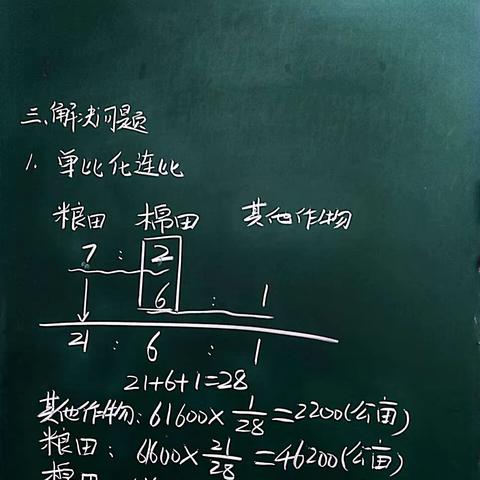 三、解决问题
1. 单比化连比
粮田 棉田 其他作物
7 : 2
6 : 1
21 : 6 : 1
21+6+1=28
其他作物: 61600×1/28=2200(公亩)
粮田: 61600×21/28=46200(公亩)
棉田